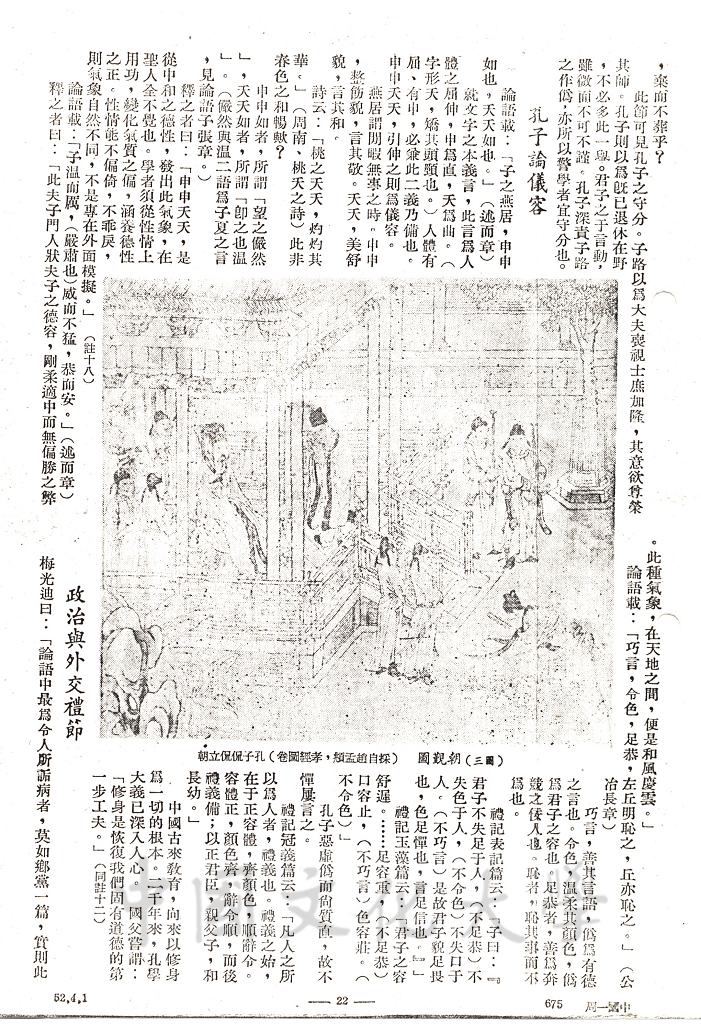 ，棄而不葬乎？
此節可見孔子之守分。子路以爲大夫喪視士庶加隆，其意欲尊榮
其師。孔子則以爲旣已退休在野
，不必多此一舉。君子之于言動，
雖微而不可不謹。孔子深責子路
之作僞；亦所以警學者宜守分也。
孔子論儀容
論語載：「子之燕居，申申
如也，夭夭如也。」（述而章）
就文字之本義言，此言爲人
體之屈伸，申爲直，夭爲曲。（
字形夭，矯其頭頸也。）人體有
屈、有申，必兼此二義乃備也。
申申夭夭，引伸之則爲儀容。
燕居謂閒暇無事之時。申申
，整飭貌，言其敬。夭夭，美舒
貌，言其和。
詩云：「桃之夭夭，灼灼其
華。」（周南、桃夭之詩）此非
春色之和暢歟？
申申如者，所謂「望之儼然
」，夭夭如者，所謂「卽之也溫
」。（儼然與溫二語爲子夏之言
，見論語子張章。）
釋之者曰：「申申夭夭，是
從中和之德性，發出此氣象，在
聖人全不覺也。學者須從性情上
用功，變化氣質之偏，涵養德性
之正。性情能不偏倚，不乖戾，
則氣象自然不同，不是專在外面模擬。」（註十八）
論語載：「子溫而厲，（嚴肅也）威而不猛，恭而安。」（述而章）
釋之者曰：「此夫子門人狀夫子之德容，剛柔適中而無偏勝之弊
。此種氣象，在天地之間，便是和風慶雲。」
論語載：「巧言，令色，足恭，左丘明恥之，丘亦恥之。」（公
冶長章）
巧言，善其言語，僞爲有德
之言也。令色，溫柔其顏色，僞
爲君子之容也。足恭者，善爲奔
競之倿人也。恥者，恥其事而不
爲也。
禮記表記篇云：「子曰：『
君子不失足于人，（不足恭）不
失色于人，（不令色）不失口于
人。（不巧言）是故君子貌足畏
也，色足憚也，言足信也。』」
禮記玉藻篇云：「君子之容
舒遲。……足容重，（不足恭）
口容止，（不巧言）色容莊。（
不令色）」
孔子惡虛僞而尙質直，故不
憚屢言之。
禮記冠義篇云：「凡人之所
以爲人者，禮義也。禮義之始，
在于正容體，齊顏色，順辭令。
容體正，顏色齊，辭令順，而後
禮義備；以正君臣，親父子，和
長幼。」
中國古來敎育，向來以修身
爲一切的根本。二千年來，孔學
大義已深入人心。國父嘗謂：
「修身是恢復我們固有道德的第
一步工夫。」（同註十二）
政治與外交禮節
梅光迪曰：「論語中最爲令人所詬病者，莫如鄕黨一篇，實則此
（圖三）朝覲圖（採自趙孟頫，孝經圖卷）孔子侃侃立朝
中國文化大學
52,4,1
— 22 —
675
中國一周